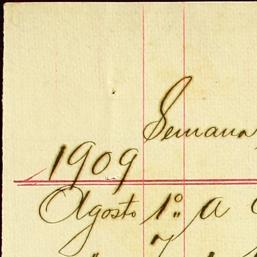 Semana
1909
Agosto 1º: a
7